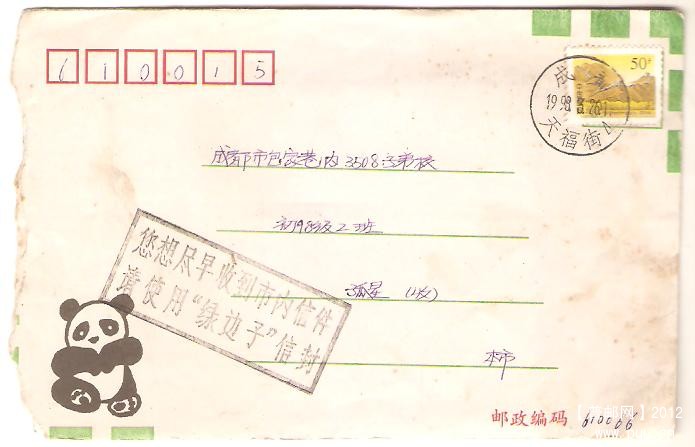 610015
50分
成都
1998
天福街
成都市包家巷内3508子弟校
初98级2班
孤星 (收)
您想尽早收到市内信件
请使用“绿边子”信封
本市
邮政编码 610066
2012